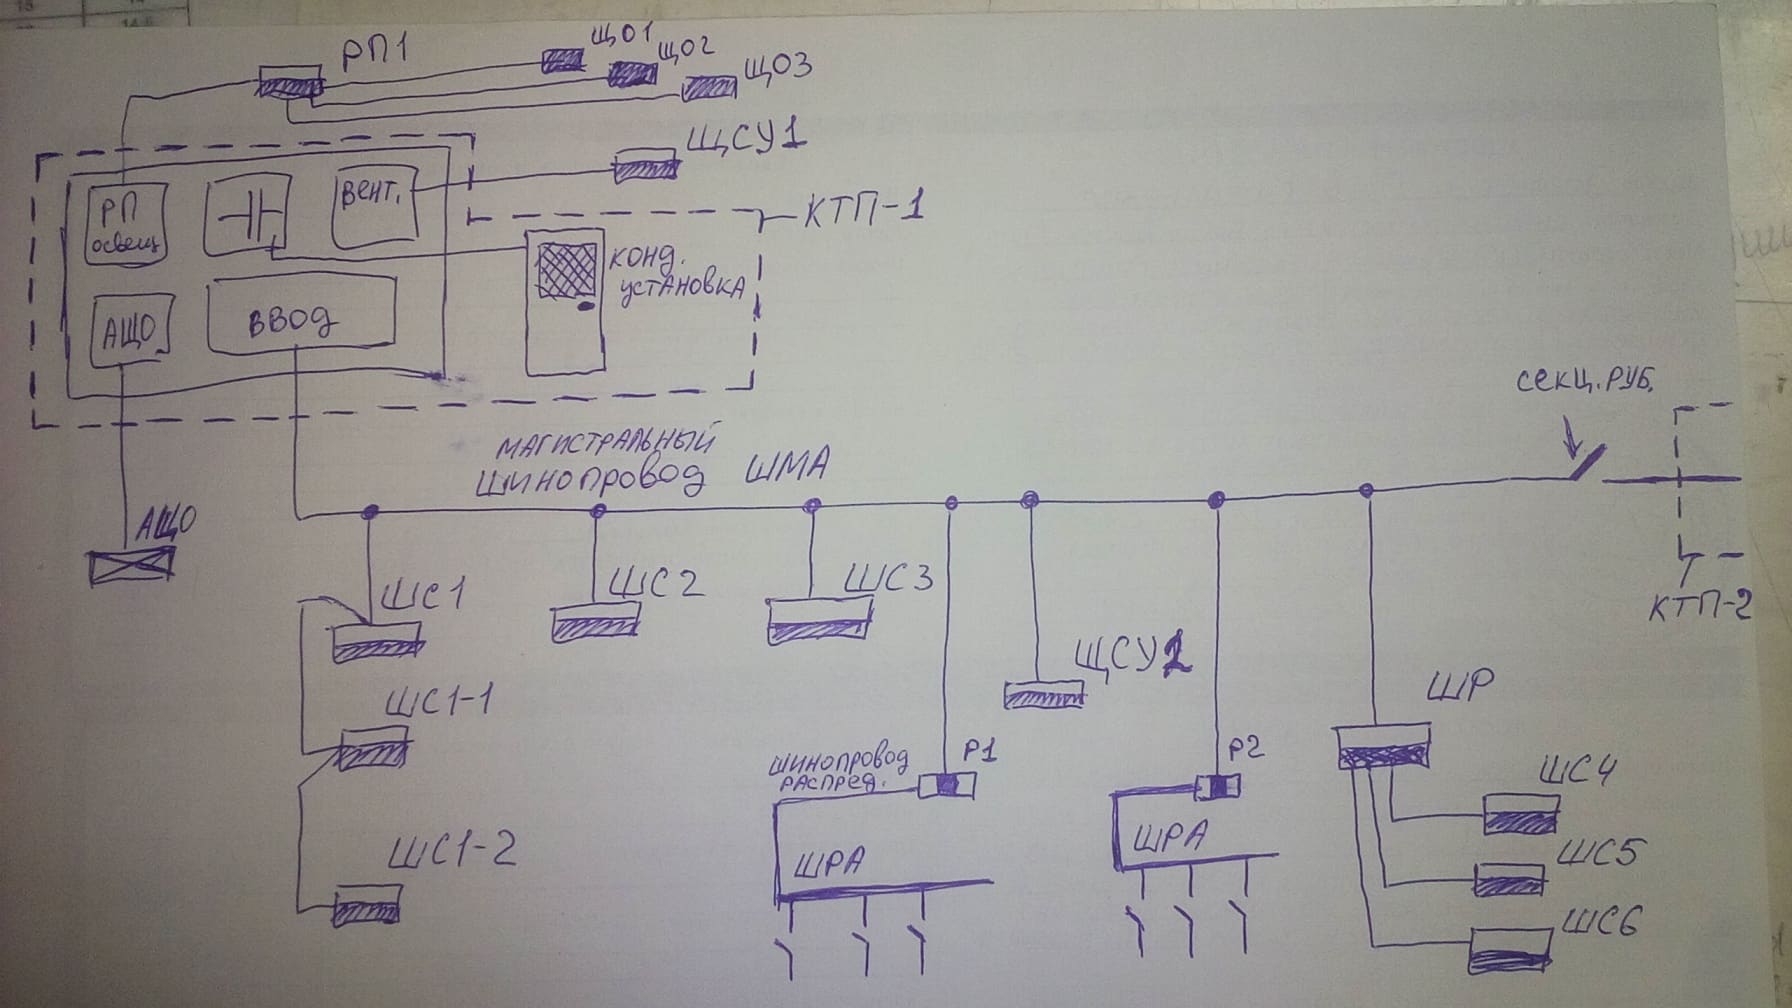 РП1
ЩО1
ЩО2
ЩО3
ЩСУ1
КТП-1
РП
освещ
Вент.
КОНД.
УСТАНОВКА
АЩО
ВВОД
СЕКЦ. РУБ.
МАГИСТРАЛЬНЫЙ
ШИНОПРОВОД ШМА
АЩО
КТП-2
ШС1
ШС2
ШС3
ЩСУ2
ШР
ШС1-1
ШИНОПРОВОД
РАСПРЕД.
Р1
Р2
ШС4
ШРА
ШРА
ШС1-2
ШС5
ШС6